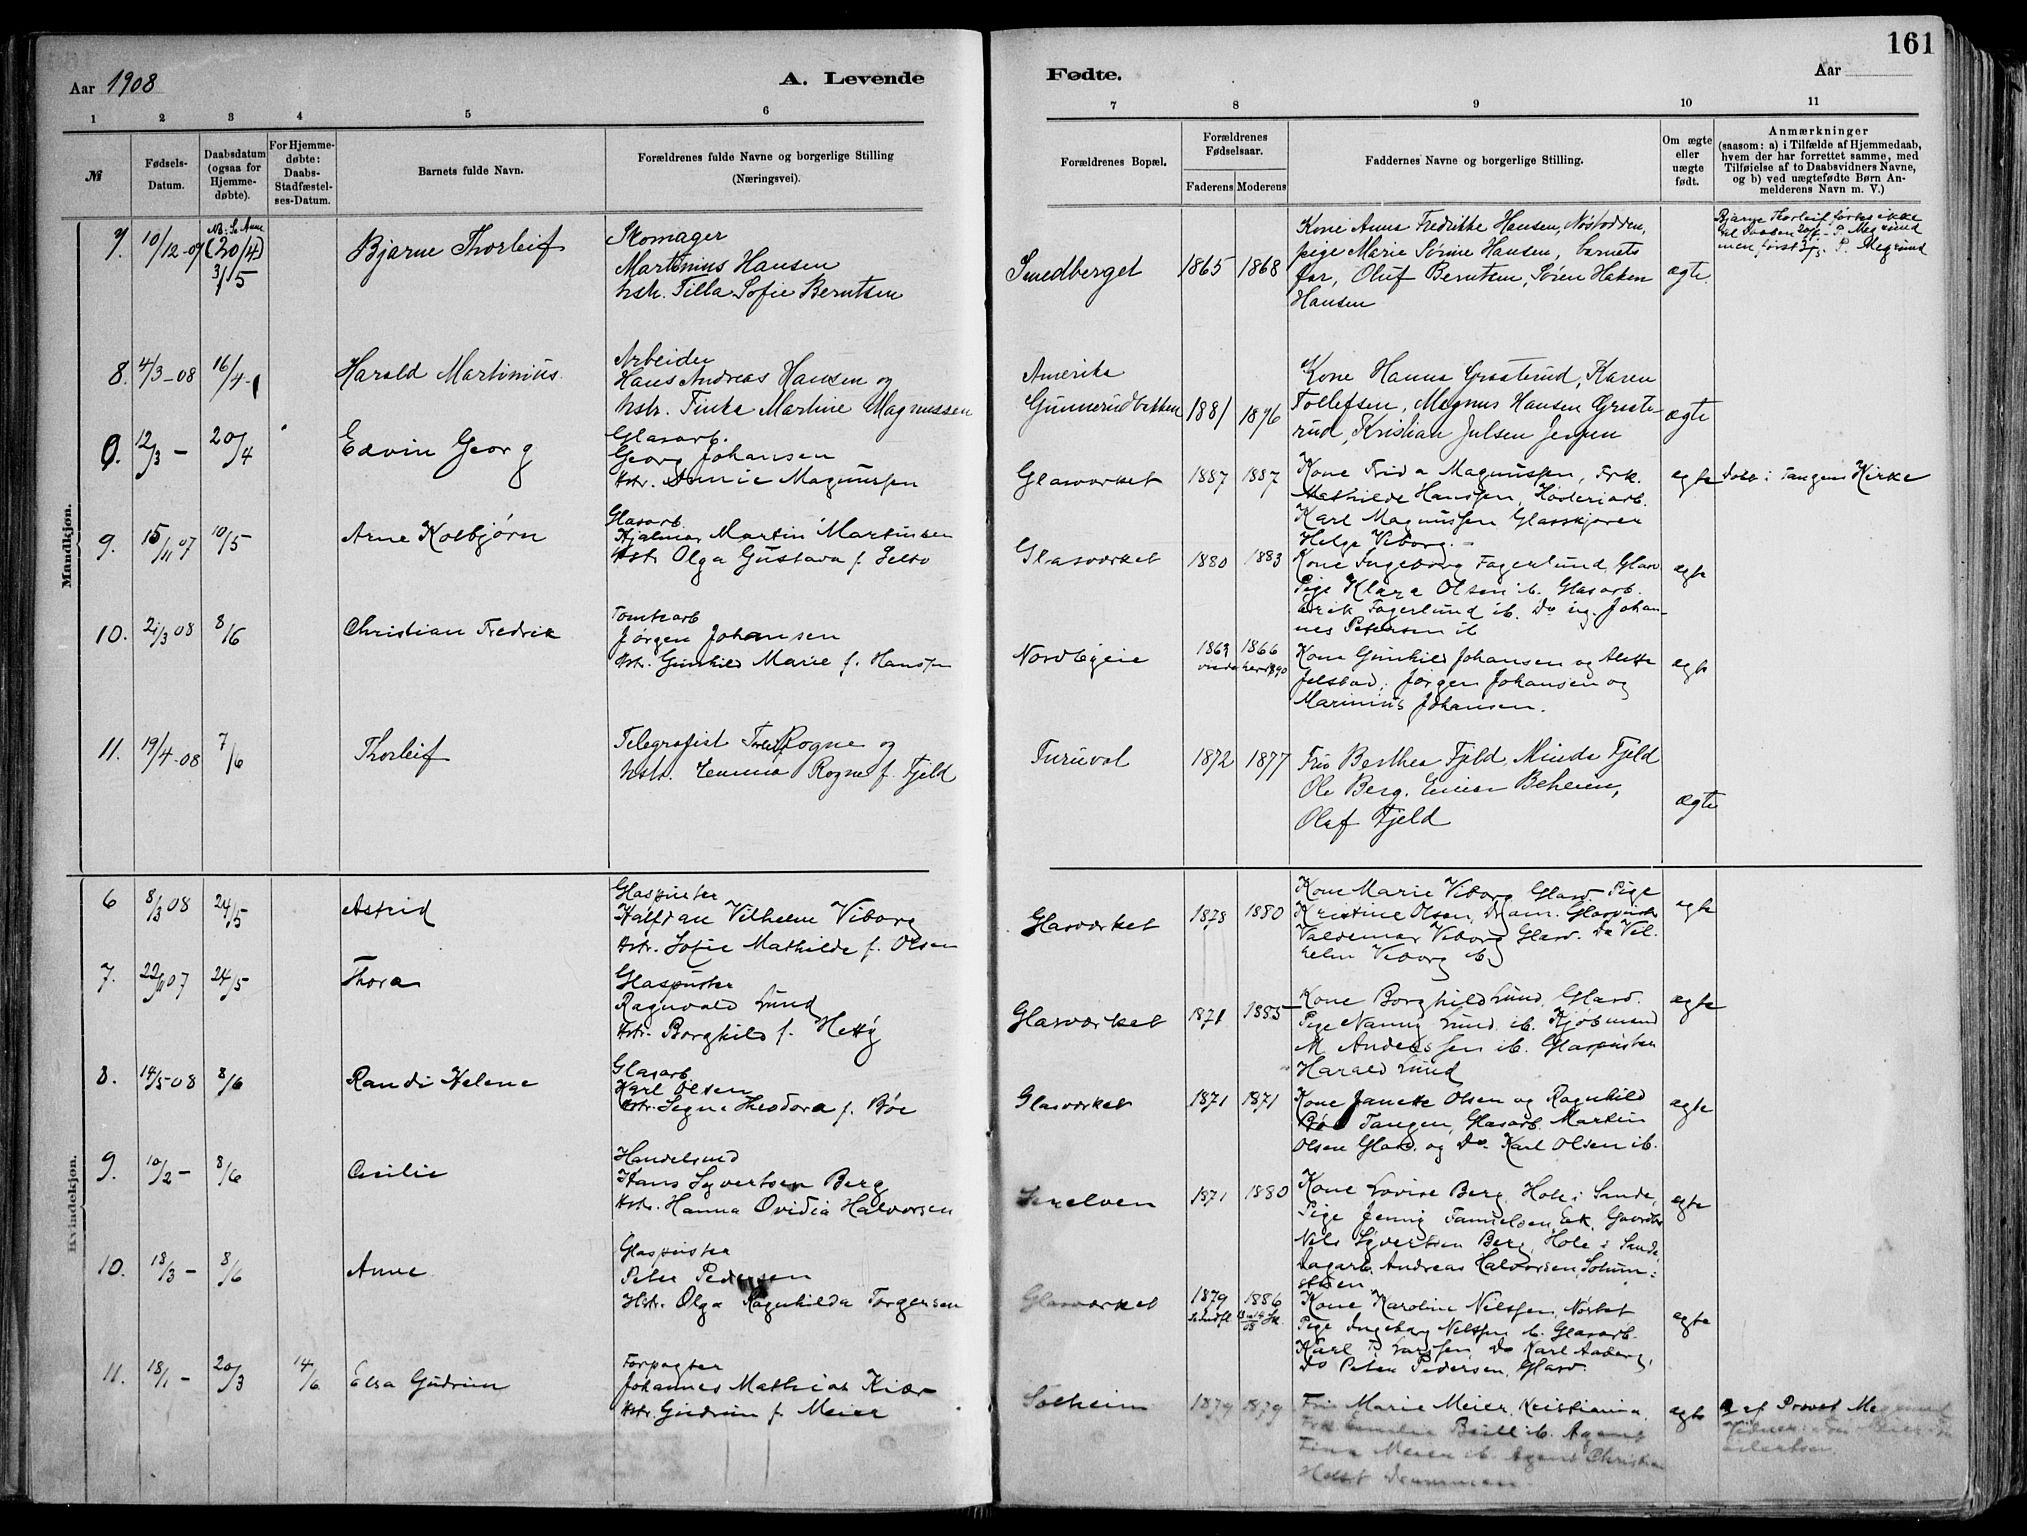 161
Aar 1908
A. Levende
Fødte.
Aar
1 2 3 4 5 6
7 8 9 10 11
№
Fødsels-
Datum.
Daabsdatum
(ogsaa for
Hjemme-
døbte).
For Hjemme-
døbte:
Daabs-
Stadfæstel-
ses-Datum.
Barnets fulde Navn.
Forældrenes fulde Navne og borgerlige Stilling
(Næringsvei).
Forældrenes Bopæl.
Forældrenes
Fødselsaar.
Faderens Moderens
Faddernes Navne og borgerlige Stilling.
Om ægte
eller
uægte
født.
Anmærkninger
(saasom: a) i Tilfælde af Hjemmedaab,
hvem der har forrettet samme, med
Tilføielse af to Daabsvidners Navne,
og b) ved uægtefødte Børn An-
melderens Navn m. V.)
Mandkjøn.
7. 10/12-07 (20/4)
31/5
Bjarne Thorleif
Skomager
Martinius Hansen
hstr. Tilla Sofie Berntsen
Smedberget 1865 1868
Kone Anna Fredrikke Hansen, Nøstodden,
pige Marie Sørine Hansen, barnets
far, Oluf Berntsen, Søren Haken
Hansen
ægte.
Bjarne Thorleif førtes ikke
til Daaben 20/4 - P. Megrund
men først 31/5. P. Megrund
8. 4/3-08 16/4
Harald Martinius.
Arbeider
Hans Andreas Hansen og
hstr. Tinka Martine Magnussen
Amerika
Gunnerudbakken 1881 1876
Kone Hanna Graaterud, Karen
Tollefsen, Magnus Hansen Graate-
rud, Kristian Julsen Jensen
ægte
9. 12/3 - 20/4
Edvin Georg
Glasarb.
Georg Johansen
Hstr. Annie Magnussen
Glasværket 1887 1887
Kone Frida Magnussen, Frk.
Mathilde Hanssen,
Karl Magnussen Glasskjærer
Helge Viborg.-
egte
Døbt i Tangens Kirke
9. 15/11 07 10/5
Arne Kolbjørn
Glasarb.
Hjalmar Martin Martinsen
Hstr Olga Gustava f. Selto
Glasværket 1880 1883
Kone Ingeborg Fagerlund, Glasv
Pige Klara Olsen ib. Glasarb.
Erik Fagerlund ib. Do ug. Johan-
nes Petersen ib
egte
10. 21/3 08 8/6
Christian Fredrik
Tomtearb
Jørgen Johansen
Hstr. Gunhild Marie f. Hanssen
Nordbyeie 1863 1866
Kone Gunhild Johansen og Alette
Jelstad, Jørgen Johansen og
Marinius Johansen.
egte
11. 19/4-08 7/6
Thorleif
Telegrafist Torleif Rogne og
hstr. Emma Rogne f. Fjeld
Furuvol 1872 1877
Fru Berthea Fjeld, Minda Fjeld
Ole Berg. Einar Beheim,
Olaf Fjeld
ægte
Kvindekjøn.
6 8/3 08 24/5
Astrid
Glaspuster
Halfdan Vilhelm Viborg
Hstr. Sofie Mathilde f. Olsen
Glasværket 1878 1880
Kone Marie Viborg Glasv. Pige
Kristine Olsen, Dram. Glaspuster
Valdemar Viborg Glasv. Do Vil-
helm Viborg ib
egte
7. 22/11 07 24/5
Thora
Glaspuster
Ragnvald Lund
Hstr. Borghild f. Hetty
Glasværket 1871 1885
Kone Borghild Lund, Glasv.
Pige Nanny Lund ib. Kjøbmand
M. Anderssen ib. Glaspuster
Harald Lund
egte
8. 14/5-08 8/6
Randi Helene
Glasarb.
Karl Olsen
Hstr. Signe Theodora f. Bøe
Glasværket 1871 1871
Kone Janette Olsen og Ragnhild
Bøe Tangen, Glasarb. Martin
Olsen Glasv. og Do. Karl Olsen ib.
egte
9. 10/2 - 8/6
Cecilie
Handelsmd
Hans Syvertsen Berg
Hstr. Hanna Ovidia Halvorsen
Snelven 1871 1880
Kone Lovise Berg, Hole i Sande,
Pige Jenny Samuelsen Eek, Gaardbr
Nils Syvertsen Berg, Hole i Sande,
Dagarb. Andreas Halvorsen, Solum-
stuen.
egte
10. 18/3 - 8/6
Anne
Glaspuster
Peter Pedersen
Hstr. Olga Ragnhilda Torgersen
Glasværket 1879 1886
Kone Karoline Nilssen, Nøsted
Pige Ingeborg Nilssen ib. Glasarb.
Karl P. Larssen, Do Karl Aaberg,
Do Peter Pedersen, Glasv.
egte
11. 18/1 - 20/3 14/6
Elsa Gudrun
Forpagter
Johannes Mathias Kiær
Hstr. Gudrun f. Meier
Solheim 1879 1879
Fru Marie Meier, Kristiania,
Frk Emilie Büll ib. Agent
Meier ib. Agent Christian
Holst Drammen
egte
af Provst Megrund